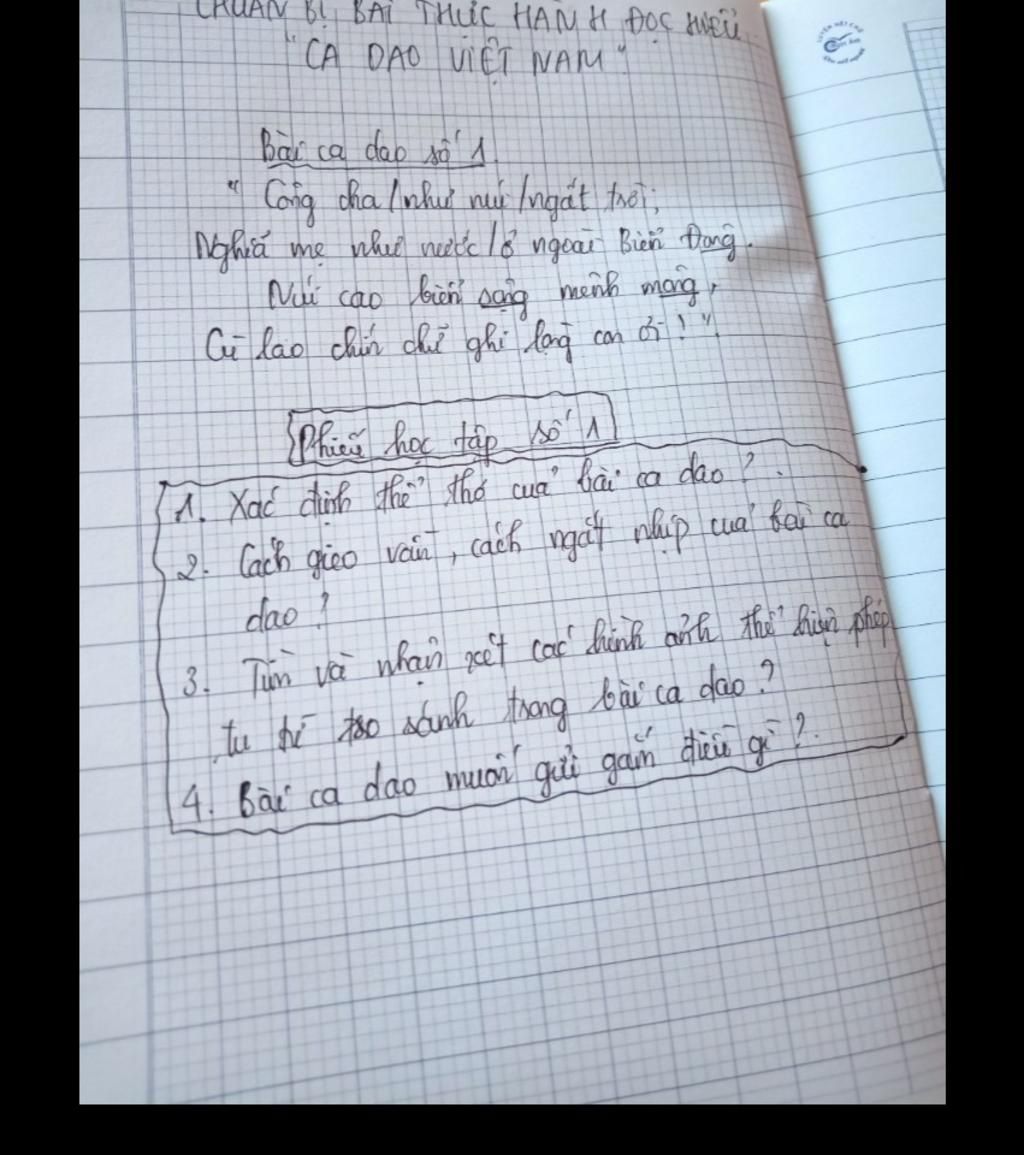 CHUẨN BỊ BÀI THỰC HÀNH ĐỌC HIỂU
"CA DAO VIỆT NAM"
Bài ca dao số 1
" Công cha / như núi / ngất trời,
Nghĩa mẹ như nước / ở ngoài Biển Đông.
Núi cao biển rộng mênh mông,
Cù lao chín chữ ghi lòng con ơi ! ".
Phiếu học tập số 1
1. Xác định thể thơ của bài ca dao ? .
2. Cách gieo vần, cách ngắt nhịp của bài ca
dao ?
3. Tìm và nhận xét các hình ảnh thể hiện phép
tu từ so sánh trong bài ca dao ?
4. Bài ca dao muốn gửi gắm điều gì ? .